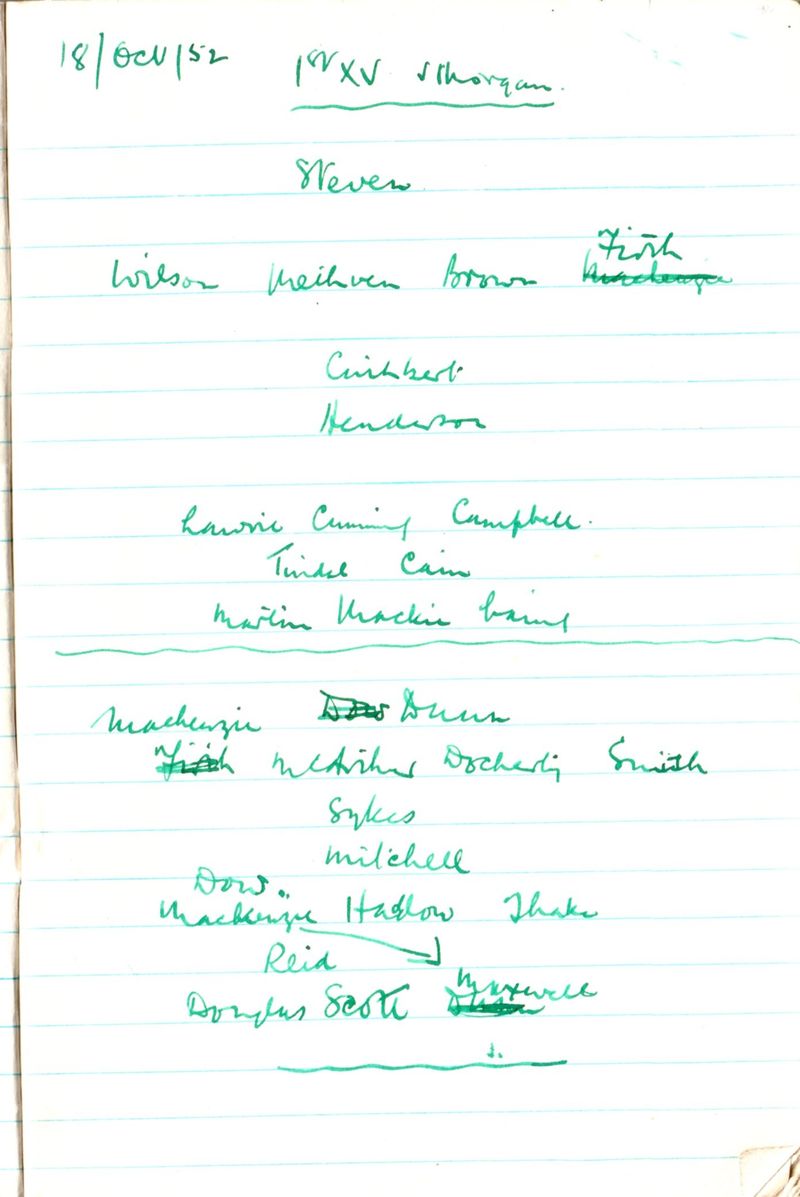 18/Oct/52 1st XV v Morgan.
Steven
Firth
Wilson Methven Brown Mackenzie
Cuthbert
Henderson
Lawrie Cumming Campbell.
Tindal Cain
Martin Mackie Laing
Mackenzie Dow Dunn
Firth McArthur Docherty Smith
Sykes
Mitchell
Dow.
Mackenzie Hadlow Thake
Reid
Maxwell
Douglas Scott